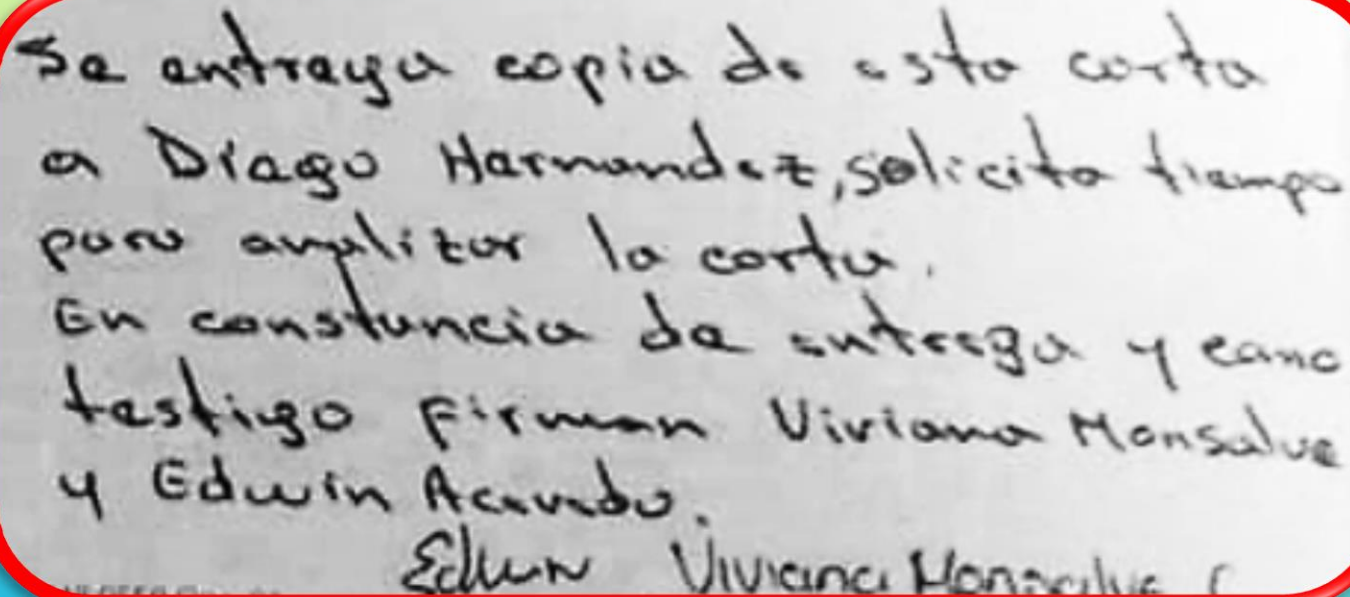 Se entrega copia de esta carta
a Diego Hernandez, solicita tiempo
para analizar la carta.
En constancia de entrega y como
testigo firman Viviana Monsalve
y Edwin Acevedo.
Edwin Viviana Monsalve C